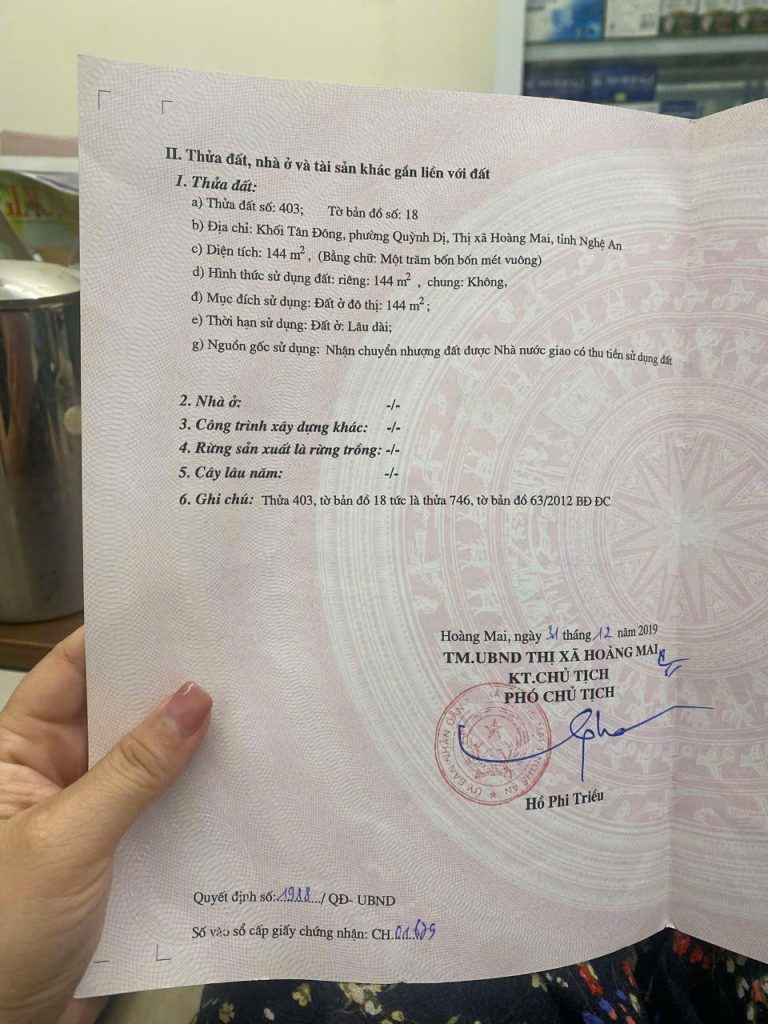 II. Thửa đất, nhà ở và tài sản khác gắn liền với đất
1. Thửa đất:
a) Thửa đất số: 403; Tờ bản đồ số: 18
b) Địa chỉ: Khối Tân Đông, phường Quỳnh Dị, Thị xã Hoàng Mai, tỉnh Nghệ An
c) Diện tích: 144 m², (Bằng chữ: Một trăm bốn bốn mét vuông)
d) Hình thức sử dụng đất: riêng: 144 m², chung: Không,
đ) Mục đích sử dụng: Đất ở đô thị: 144 m²;
e) Thời hạn sử dụng: Đất ở: Lâu dài;
g) Nguồn gốc sử dụng: Nhận chuyển nhượng đất được Nhà nước giao có thu tiền sử dụng đất
2. Nhà ở: -/-
3. Công trình xây dựng khác: -/-
4. Rừng sản xuất là rừng trồng: -/-
5. Cây lâu năm: -/-
6. Ghi chú: Thửa 403, tờ bản đồ 18 tức là thửa 746, tờ bản đồ 63/2012 BĐ ĐC
Hoàng Mai, ngày 31 tháng 12 năm 2019
TM.UBND THỊ XÃ HOÀNG MAI
KT.CHỦ TỊCH
PHÓ CHỦ TỊCH
ỦY BAN NHÂN DÂN
NGHỆ AN
Hồ Phi Triều
Quyết định số: 1988.../ QĐ- UBND
Số vào sổ cấp giấy chứng nhận: CH.01.679